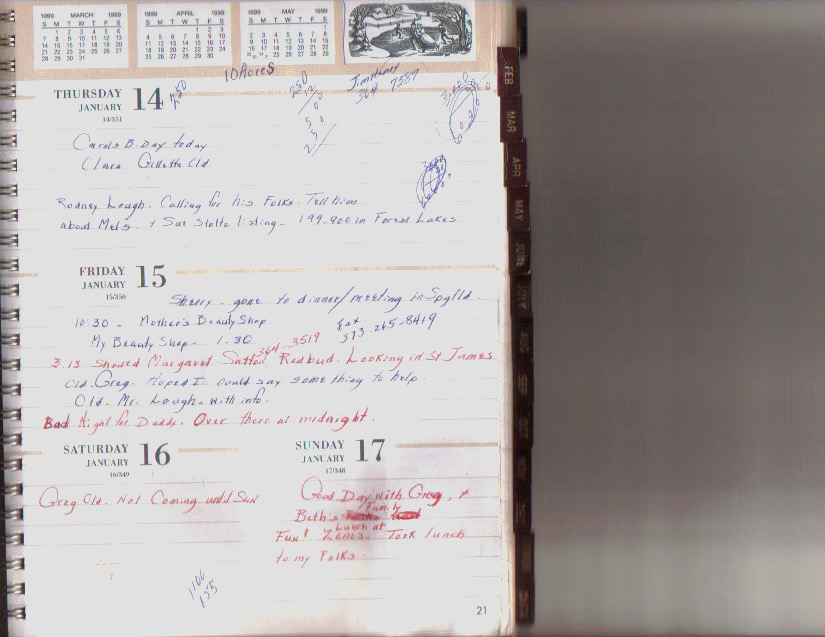 1999 MARCH 1999
S M T W T F S
1 2 3 4 5 6
7 8 9 10 11 12 13
14 15 16 17 18 19 20
21 22 23 24 25 26 27
28 29 30 31
1999 APRIL 1999
S M T W T F S
1 2 3
4 5 6 7 8 9 10
11 12 13 14 15 16 17
18 19 20 21 22 23 24
25 26 27 28 29 30
1999 MAY 1999
S M T W T F S
1
2 3 4 5 6 7 8
9 10 11 12 13 14 15
16 17 18 19 20 21 22
10 Acres
364 7557
THURSDAY 14
JANUARY
14/351
Carols B-Day today
Clara Gilletta Cld.
Rodney Lough. Calling for his Folks. Tell him
about Mels. + Sue Stoltz listing. 199-900 in Forest Lakes
FRIDAY 15
JANUARY
15/350
Sherry. gone to dinner/meeting in Spgfld.
10:30 - Mother's Beauty Shop
My Beauty Shop - 1.30
Fax
573-265-8419
364-3519
3.15 Showed Margaret Sutton, Redbud. Looking in St James
Cld. Greg. Hoped I could say something to help.
Cld. Mr. Lough. with info.
Bad Night for Daddy. Over there at midnight.
SATURDAY 16
JANUARY
16/349
Greg Cld. Not Coming until Sun
SUNDAY 17
JANUARY
17/348
Good Day with Greg, +
Beth's Family
Fun! Lunch at Zenos. Took lunch
to my Folks.
1100
155
21
FEB
MAR
APR
MAY
JUNE
JULY
AUG
SEP
OCT